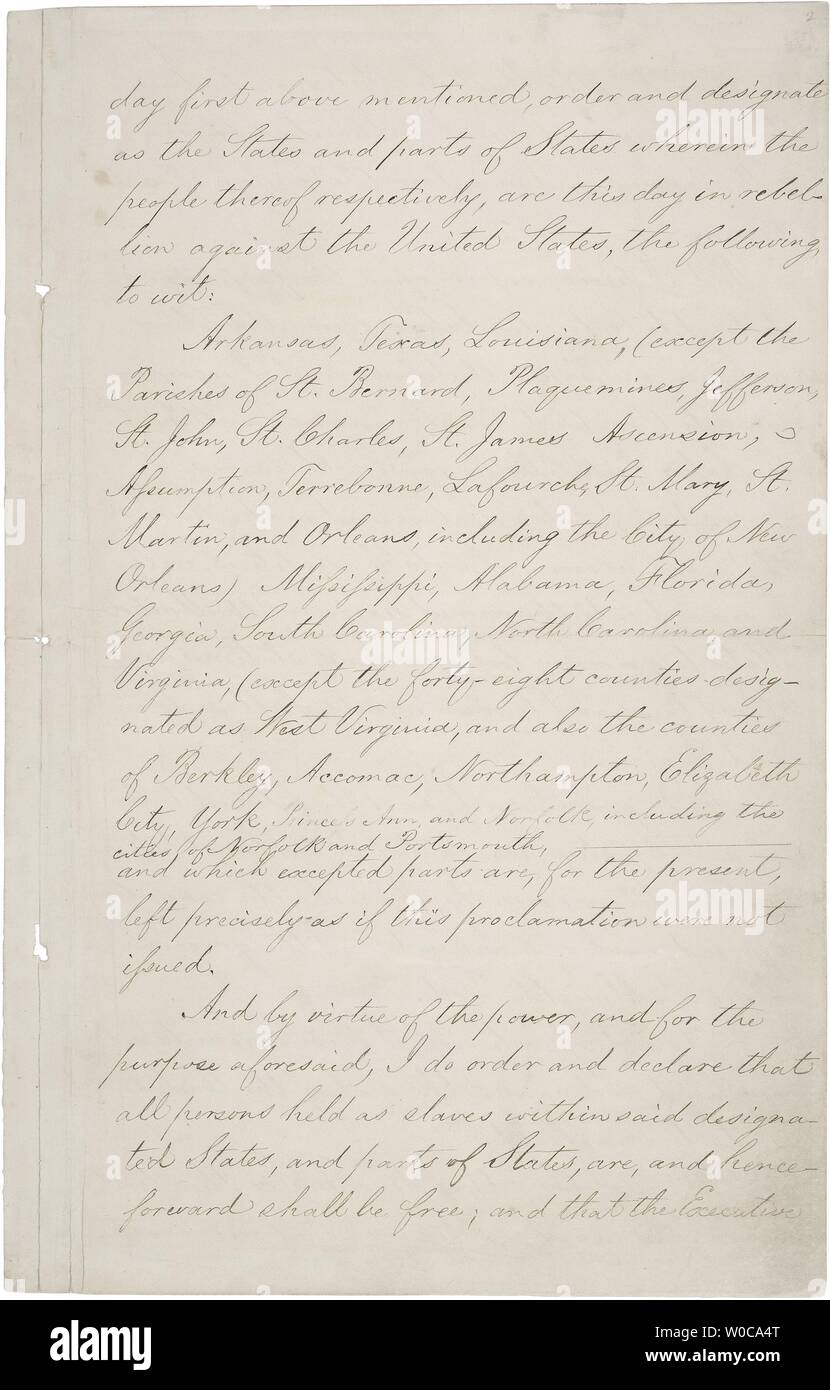 2
day first above mentioned, order and designate
as the States and parts of States wherein the
people thereof respectively, are this day in rebel-
lion against the United States, the following,
to wit:
Arkansas, Texas, Louisiana, (except the
Parishes of St. Bernard, Plaquemines, Jefferson,
St. John, St. Charles, St. James Ascension,
Assumption, Terrebonne, Lafourche, St. Mary, St.
Martin, and Orleans, including the City of New
Orleans) Mississippi, Alabama, Florida,
Georgia, South Carolina, North Carolina, and
Virginia, (except the forty-eight counties desig-
nated as West Virginia, and also the counties
of Berkley, Accomac, Northampton, Elizabeth
City, York, Princess Ann, and Norfolk, including the
cities of Norfolk and Portsmouth,
and which excepted parts are, for the present,
left precisely as if this proclamation were not
issued.
And by virtue of the power, and for the
purpose aforesaid, I do order and declare that
all persons held as slaves within said designa-
ted States, and parts of States, are, and hence-
forward shall be free; and that the Executive
alamy
alamy
Image ID: W0CA4T
www.alamy.com